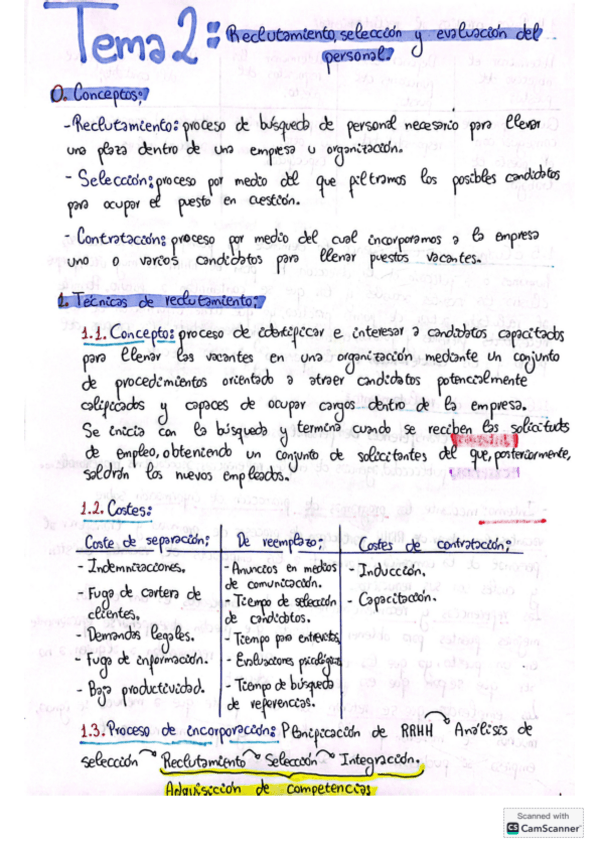 Tema 2: Reclutamiento, selección y evaluación del
personal.
0. Conceptos:
- Reclutamiento: proceso de búsqueda de personal necesario para llenar
una plaza dentro de una empresa u organización.
- Selección: proceso por medio del que filtramos los posibles candidatos
para ocupar el puesto en cuestión.
- Contratación: proceso por medio del cual incorporamos a la empresa
uno o varios candidatos para llenar puestos vacantes.
1. Técnicas de reclutamiento:
1.1. Concepto: proceso de identificar e interesar a candidatos capacitados
para llenar las vacantes en una organización mediante un conjunto
de procedimientos orientado a atraer candidatos potencialmente
calificados y capaces de ocupar cargos dentro de la empresa.
Se inicia con la búsqueda y termina cuando se reciben las solicituds
de empleo, obteniendo un conjunto de solicitantes del que, posteriormente,
saldrán los nuevos empleados.
1.2. Costes:
Coste de separación: De reemplazo: Costes de contratación:
- Indemnizaciones. - Anuncios en medios - Inducción.
de comunicación.
- Fuga de cartera de - Tiempo de selección - Capacitación.
clientes. de candidatos.
- Demandas legales. - Tiempo para entrevistas
- Fuga de información. - Evaluaciones psicológicas
- Baja productividad. - Tiempo de búsqueda
de referencias.
1.3. Proceso de incorporación: Planificación de RRHH Análisis de
selección Reclutamiento Selección Integración.
Adquisición de competencias
Scanned with
CS CamScanner